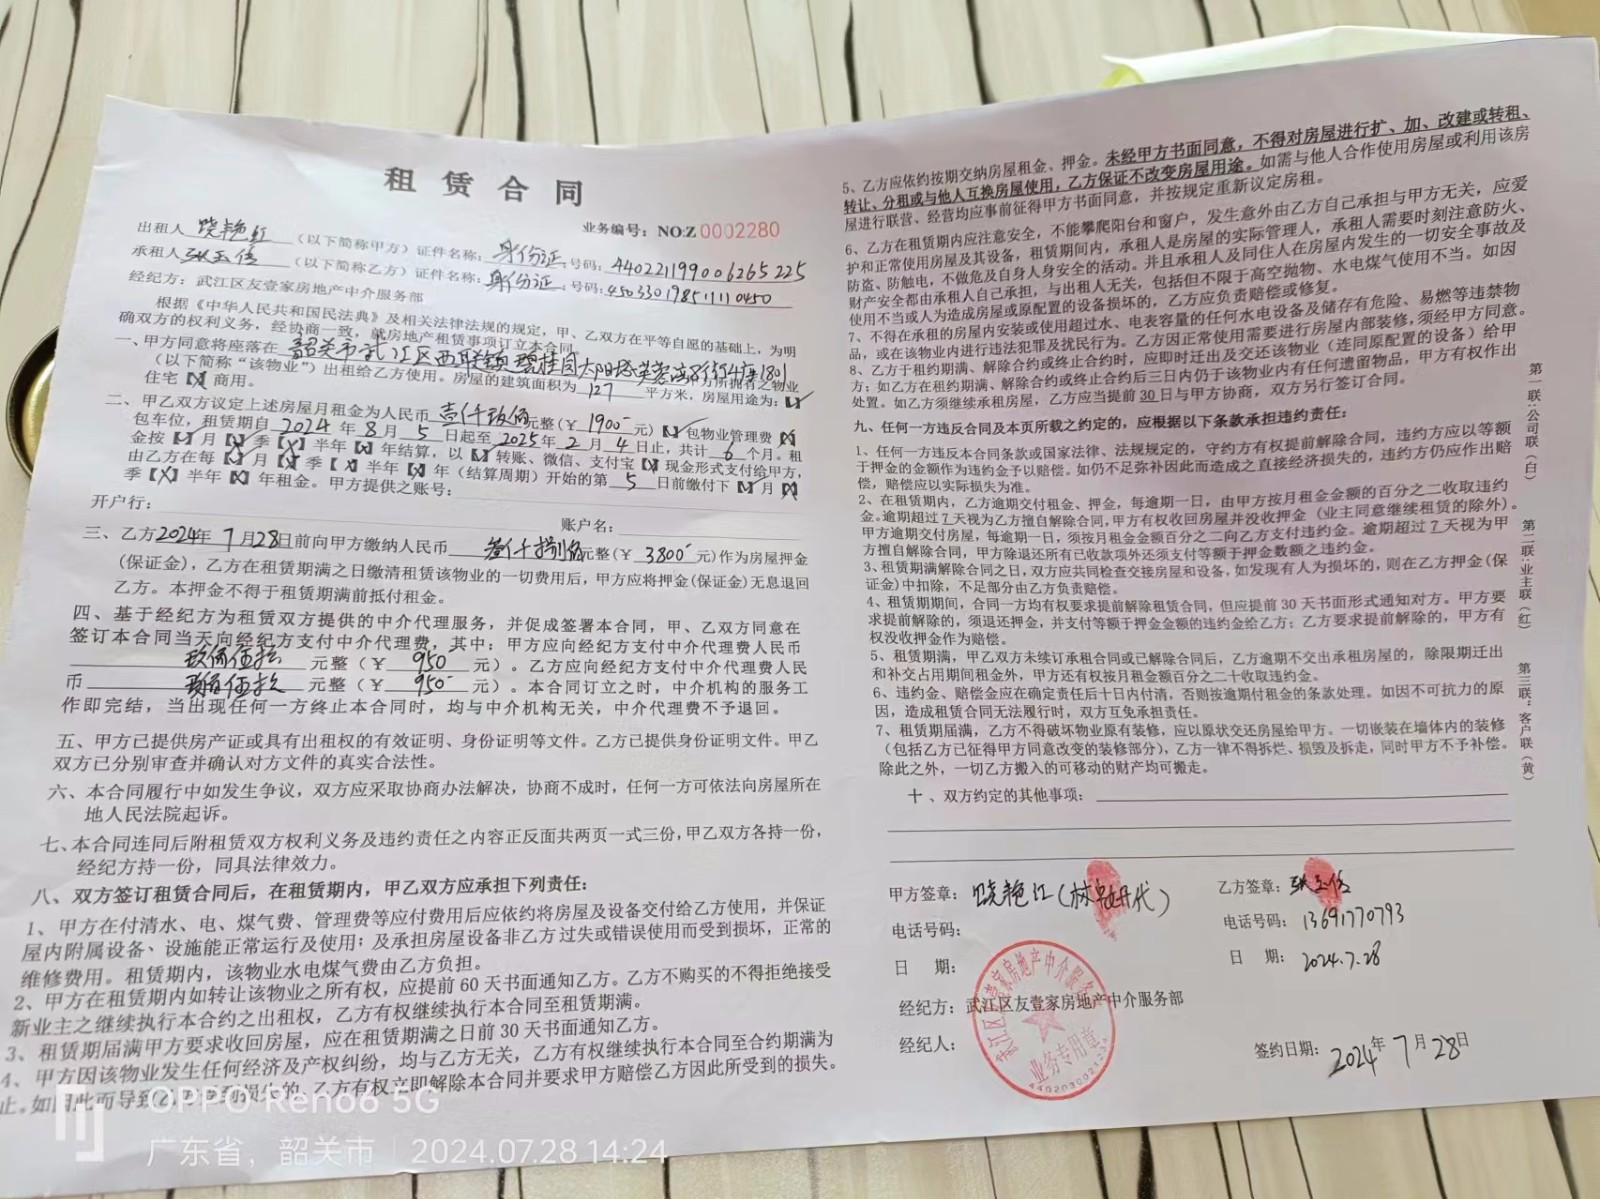 租赁合同
业务编号：NO:Z 0002280
出租人 饶艳红 （以下简称甲方）证件名称：身份证 号码：440221199006265225
承租人 张玉倍 （以下简称乙方）证件名称：身份证 号码：450330198511110450
经纪方：武江区友壹家房地产中介服务部
根据《中华人民共和国民法典》及相关法律法规的规定，甲、乙双方在平等自愿的基础上，为明
确双方的权利义务，经协商一致，就房地产租赁事项订立本合同
一、甲方同意将座落在 韶关市武江区西联镇碧桂园太阳城芙蓉 4座1801 方所拥有之物业
（以下简称“该物业”）出租给乙方使用。房屋的建筑面积为 127 平方米，房屋用途为：【√】
住宅【X】商用。
二、甲乙双方议定上述房屋月租金为人民币 壹仟玖佰 元整（￥ 1900 元）【√】包物业管理费【X】
包车位，租赁期自 2024 年 8 月 5 日起至 2025 年 2 月 4 日止，共计 6 个月。租
金按【√】月【X】季【X】半年【X】年结算，以【√】转账、微信、支付宝【X】现金形式支付给甲方，
由乙方在每【√】月【X】季【X】半年【X】年（结算周期）开始的第 5 日前缴付下【√】月【X】
季【X】半年【X】年租金。甲方提供之账号：
开户行： 账户名：
三、乙方2024年 7月28日前向甲方缴纳人民币 叁仟捌佰 元整（￥ 3800 元）作为房屋押金
（保证金），乙方在租赁期满之日缴清租赁该物业的一切费用后，甲方应将押金(保证金)无息退回
乙方。本押金不得于租赁期满前抵付租金。
四、基于经纪方为租赁双方提供的中介代理服务，并促成签署本合同，甲、乙双方同意在
签订本合同当天向经纪方支付中介代理费，其中：甲方应向经纪方支付中介代理费人民币
玖佰伍拾 元整（￥ 950 元）。乙方应向经纪方支付中介代理费人民
币 玖佰伍拾 元整（￥ 950 元）。本合同订立之时，中介机构的服务工
作即完结，当出现任何一方终止本合同时，均与中介机构无关，中介代理费不予退回。
五、甲方已提供房产证或具有出租权的有效证明、身份证明等文件。乙方已提供身份证明文件。甲乙
双方已分别审查并确认对方文件的真实合法性。
六、本合同履行中如发生争议，双方应采取协商办法解决，协商不成时，任何一方可依法向房屋所在
地人民法院起诉。
七、本合同连同后附租赁双方权利义务及违约责任之内容正反面共两页一式三份，甲乙双方各持一份，
经纪方持一份，同具法律效力。
八、双方签订租赁合同后，在租赁期内，甲乙双方应承担下列责任：
1、甲方在付清水、电、煤气费、管理费等应付费用后应依约将房屋及设备交付给乙方使用，并保证
屋内附属设备、设施能正常运行及使用；及承担房屋设备非乙方过失或错误使用而受到损坏，正常的
维修费用。租赁期内，该物业水电煤气费由乙方负担。
2、甲方在租赁期内如转让该物业之所有权，应提前60天书面通知乙方。乙方不购买的不得拒绝接受
新业主之继续执行本合约之出租权，乙方有权继续执行本合同至租赁期满。
3、租赁期届满甲方要求收回房屋，应在租赁期满之日前30天书面通知乙方。
4、甲方因该物业发生任何经济及产权纠纷，均与乙方无关，乙方有权继续执行本合同至合约期满为
止。如因此而导致乙方受到损失的，乙方有权立即解除本合同并要求甲方赔偿乙方因此所受到的损失。
OPPO Reno6 5G
广东省，韶关市 | 2024.07.28 14:24
5、乙方应依约按期交纳房屋租金、押金。未经甲方书面同意，不得对房屋进行扩、加、改建或转租、
转让、分租或与他人互换房屋使用，乙方保证不改变房屋用途。如需与他人合作使用房屋或利用该房
屋进行联营、经营均应事前征得甲方书面同意，并按规定重新议定房租。
6、乙方在租赁期内应注意安全，不能攀爬阳台和窗户，发生意外由乙方自己承担与甲方无关，应爱
护和正常使用房屋及其设备，租赁期间内，承租人是房屋的实际管理人，承租人需要时刻注意防火、
防盗、防触电，不做危及自身人身安全的活动。并且承租人及同住人在房屋内发生的一切安全事故及
财产安全都由承租人自己承担，与出租人无关，包括但不限于高空抛物、水电煤气使用不当。如因
使用不当或人为造成房屋或原配置的设备损坏的，乙方应负责赔偿或修复。
7、不得在承租的房屋内安装或使用超过水、电表容量的任何水电设备及储存有危险、易燃等违禁物
品，或在该物业内进行违法犯罪及扰民行为。乙方因正常使用需要进行房屋内部装修，须经甲方同意。
8、乙方于租约期满、解除合约或终止合约时，应即时迁出及交还该物业（连同原配置的设备）给甲
方；如乙方在租约期满、解除合约或终止合约后三日内仍于该物业内有任何遗留物品，甲方有权作出
处置。如乙方须继续承租房屋，乙方应当提前30日与甲方协商，双方另行签订合同。
九、任何一方违反合同及本页所载之约定的，应根据以下条款承担违约责任：
1、任何一方违反本合同条款或国家法律、法规规定的，守约方有权提前解除合同，违约方应以等额
于押金的金额作为违约金予以赔偿。如仍不足弥补因此而造成之直接经济损失的，违约方仍应作出赔
偿，赔偿应以实际损失为准。
2、在租赁期内，乙方逾期交付租金、押金，每逾期一日，由甲方按月租金金额的百分之二收取违约
金。逾期超过7天视为乙方擅自解除合同，甲方有权收回房屋并没收押金（业主同意继续租赁的除外）。
甲方逾期交付房屋，每逾期一日，须按月租金金额百分之二向乙方支付违约金。逾期超过7天视为甲
方擅自解除合同，甲方除退还所有已收款项外还须支付等额于押金数额之违约金。
3、租赁期满解除合同之日，双方应共同检查交接房屋和设备，如发现有人为损坏的，则在乙方押金（保
证金）中扣除，不足部分由乙方负责赔偿。
4、租赁期期间，合同一方均有权要求提前解除租赁合同，但应提前30天书面形式通知对方。甲方要
求提前解除的，须退还押金，并支付等额于押金金额的违约金给乙方；乙方要求提前解除的，甲方有
权没收押金作为赔偿。
5、租赁期满，甲乙双方未续订承租合同或已解除合同后，乙方逾期不交出承租房屋的，除限期迁出
和补交占用期间租金外，甲方还有权按月租金额百分之二十收取违约金。
6、违约金、赔偿金应在确定责任后十日内付清，否则按逾期付租金的条款处理。如因不可抗力的原
因，造成租赁合同无法履行时，双方互免承担责任。
7、租赁期届满，乙方不得破坏物业原有装修，应以原状交还房屋给甲方。一切嵌装在墙体内的装修
（包括乙方已征得甲方同意改变的装修部分），乙方一律不得拆烂、损毁及拆走，同时甲方不予补偿。
除此之外，一切乙方搬入的可移动的财产均可搬走。
十、双方约定的其他事项：
甲方签章：饶艳江(林 丹代)
乙方签章：张玉倍
电话号码：
电话号码：13691770793
日 期：
日 期：2024.7.28
经纪方：武江区友壹家房地产中介服务部
经纪人：
签约日期：2024年7月28日
武江区友壹家房地产中介服务部
业务专用章
第一联：公司联（白）
第二联：业主联（红）
第三联：客户联（黄）